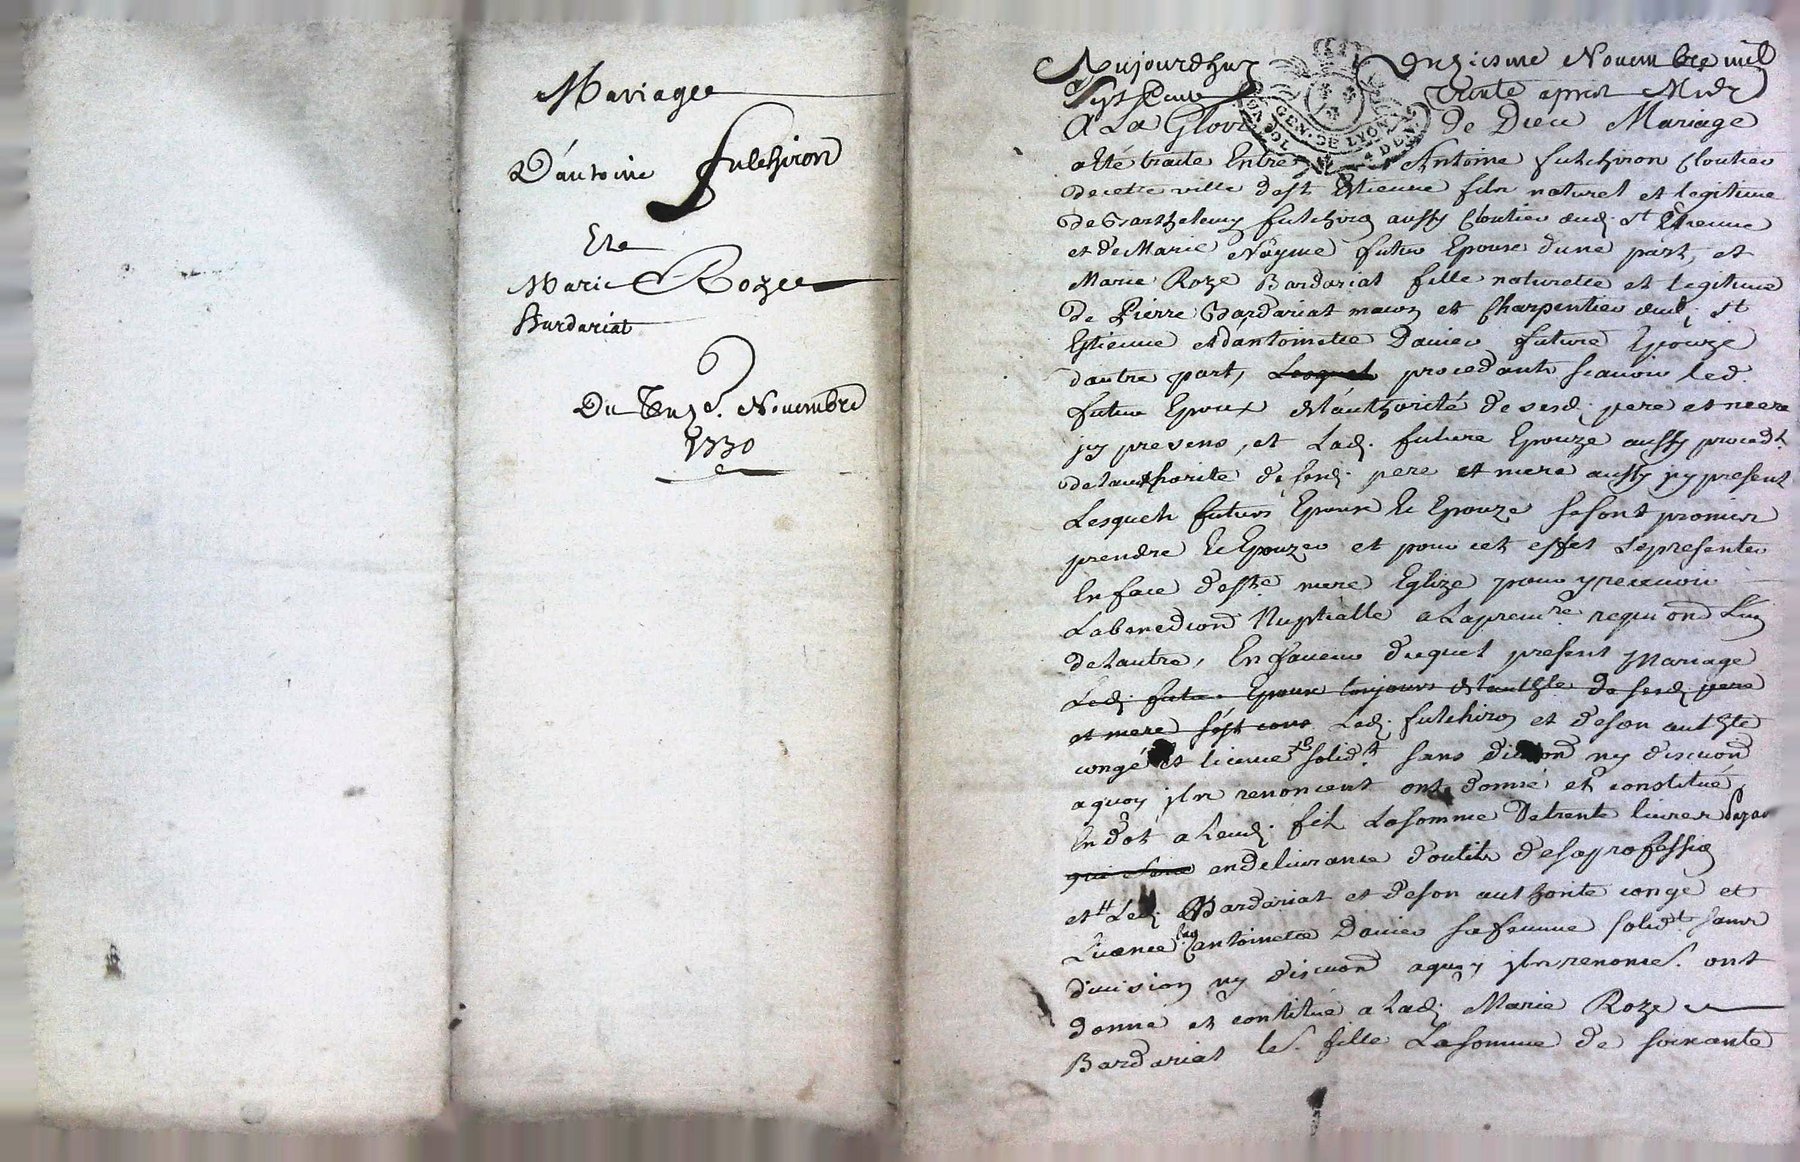 Mariage
D'antoine fulchiron
Et
Marie Roze
Bardariat
Du Onze. Novembre
1730
Aujourdhuy Onziesme Novembre mil
Sept Cent trente apres Midy
A La Gloire de Dieu Mariage
GEN. DE LYON
4 DEN.
a été traite Entre Antoine fulchiron Cloutier
de cette ville de st Etienne fils naturel et legitime
de Barthelemy fulchiron aussy Cloutier aud. st Etienne
et de Marie futur Epoux dune part, et
Marie Roze Bardariat fille naturelle et legitime
de Pierre Bardariat masson et Charpentier aud. st
Etienne et dantoinette Danier future Epouze
dautre part, Lesquels procedants scavoir led.
futur Epoux de l'authorité de sesd. pere et mere
jcy presens, et Lad. future Epouze aussy procedt.
de lauthorite de sesd. pere et mere aussy jcy present
Lesquels futurs Epoux Et Epouze se sont promis
prendre Et Epouzer et pour cet effet se presenter
En face de ste. mere Eglize pour y recevoir
La benedion Nuptialle a La premre. requion Lun
de Lautre, En faveur duquel present Mariage
Led. futur Epoux toujours de lauthte de sesd. pere
et mere s'est cons Led. fulchiron et de son authte
congé et licence solidt. sans division ny discuion
a quoy jls renoncent ont donné et constitué
En dot a Leurd. fils La somme De trente livres
en delivrance d'outils de sa profession
et Led. Bardariat et de son authorite conge et
Licence lad. antoinette Danier sa femme solidt. sans
division ny discuion a quoy jls renonce. ont
donne et contitue a Lad. Marie Roze
Bardariat le. fille La somme de soixante